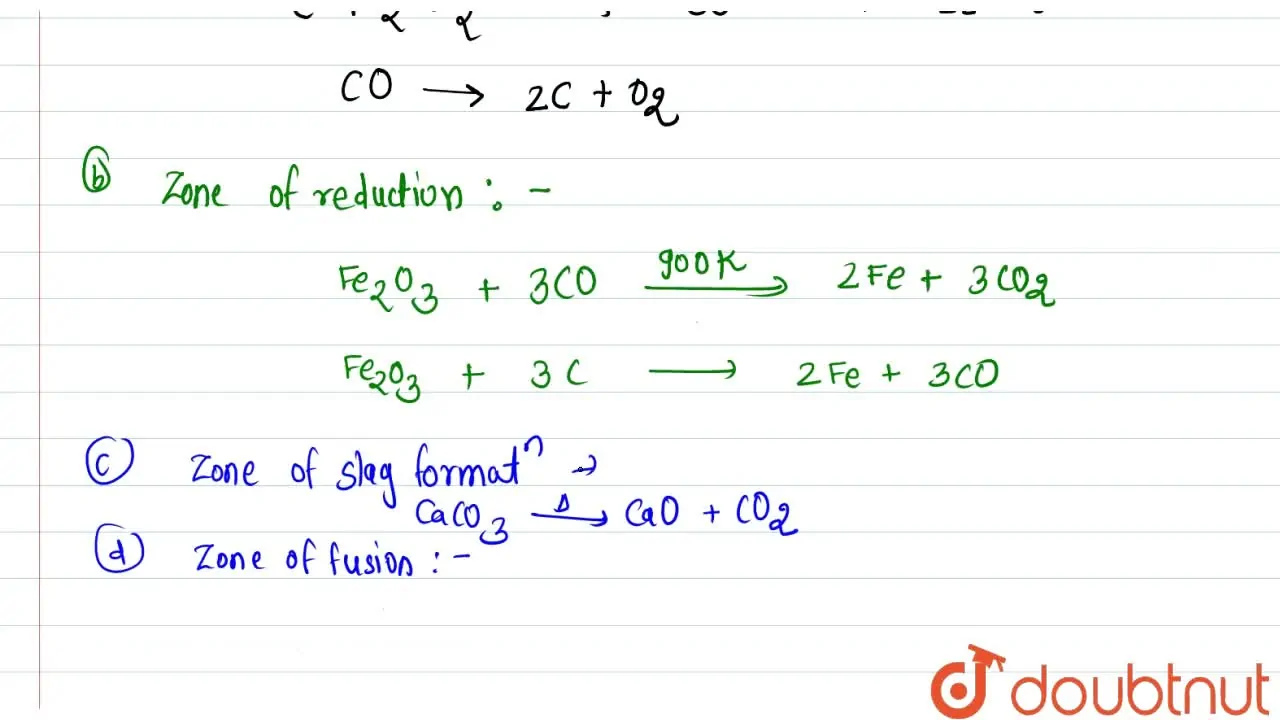 CO → 2C + O2
(b) Zone of reduction : -
Fe2O3 + 3CO 900K → 2Fe + 3CO2
Fe2O3 + 3C → 2Fe + 3CO
(c) Zone of slag formatⁿ →
CaCO3 Δ → CaO + CO2
(d) Zone of fusion : -
doubtnut